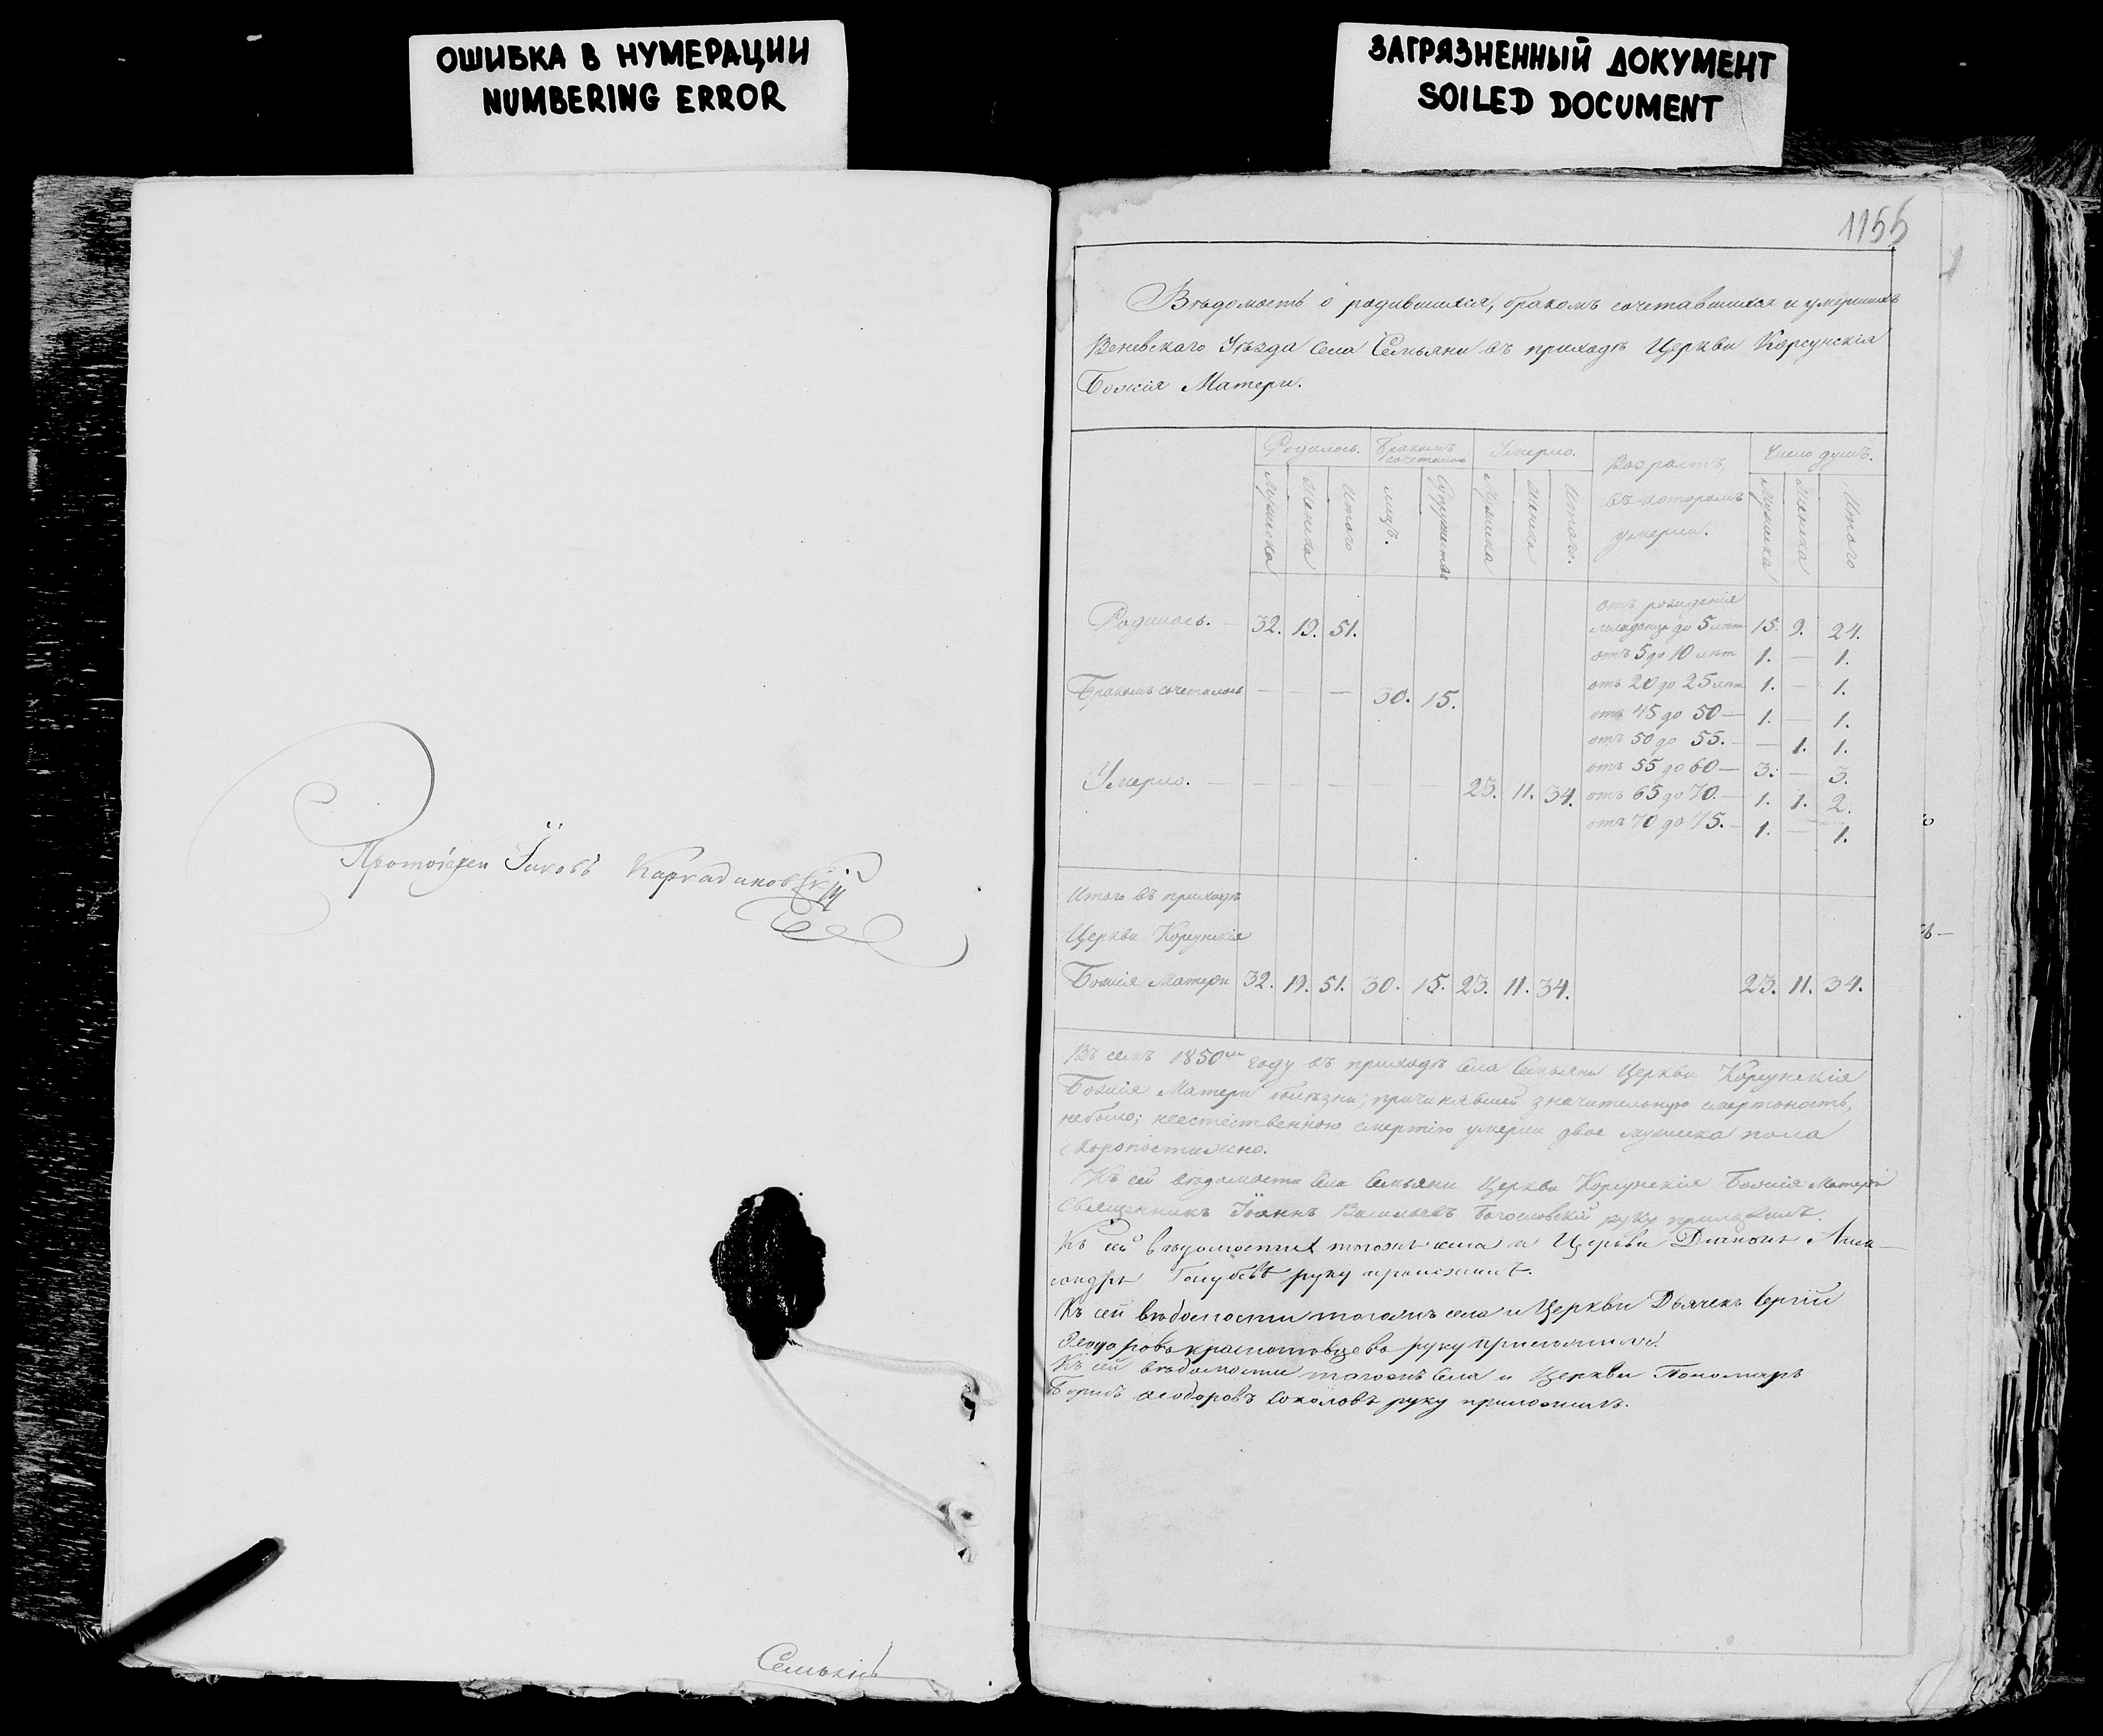 ОШИБКА В НУМЕРАЦИИ
NUMBERING ERROR
ЗАГРЯЗНЕННЫЙ ДОКУМЕНТ
SOILED DOCUMENT
Протоіерей Іаковъ
1155
Вѣдомость о родившихся, бракомъ сочетавшихся и умершихъ
Веневскаго Уѣзда села Семьяни въ приходѣ Церкви Корсунскія
Божія Матери.
Родилось. Бракомъ сочеталось Умерло. Возрастъ, въ которомъ умерли. Число душъ.
Мужеска Женска Итого лицъ. Супружествъ Мужска Женска Итого. Мужска Женска Итого
Родилось. — 32. 19. 51. отъ рожденія младенца до 5 лѣт 15. 9. 24.
отъ 5 до 10 лѣт 1. — 1.
Бракомъ сочеталось — — — 30. 15. отъ 20 до 25 лѣт 1. — 1.
отъ 45 до 50 — 1. — 1.
отъ 50 до 55. — — 1. 1.
отъ 55 до 60 — 3. — 3.
Умерло. — — — — — — 23. 11. 34. отъ 65 до 70. — 1. 1. 2.
отъ 70 до 75. — 1. — 1.
Итого въ приходѣ
Церкви Корсунскія
Божія Матери 32. 19. 51. 30. 15. 23. 11. 34. 23. 11. 34.
Въ семъ 1850мъ году въ приходѣ села Семьяни Церкви Корсунскія
Божія Матери болѣзни, причинявшей значительную смертоность,
небыло; неестественною смертію умерли двое мужеска пола
скоропостижно.
Къ сей вѣдомости села Семьяни Церкви Корсунскія Божія Матери
Священникъ Іоаннъ Васильевъ Богословскій руку приложилъ.
Къ сей вѣдомости тогожъ села и Церкви Діаконъ Алек-
сандръ Голубевъ руку приложилъ.
Къ сей вѣдомости тогожъ села и Церкви Дьячекъ Сергій
Ѳеодоровъ руку приложилъ.
Къ сей вѣдомости тогожъ села и Церкви Пономарь
Борисъ Ѳеодоровъ Соколовъ руку приложилъ.